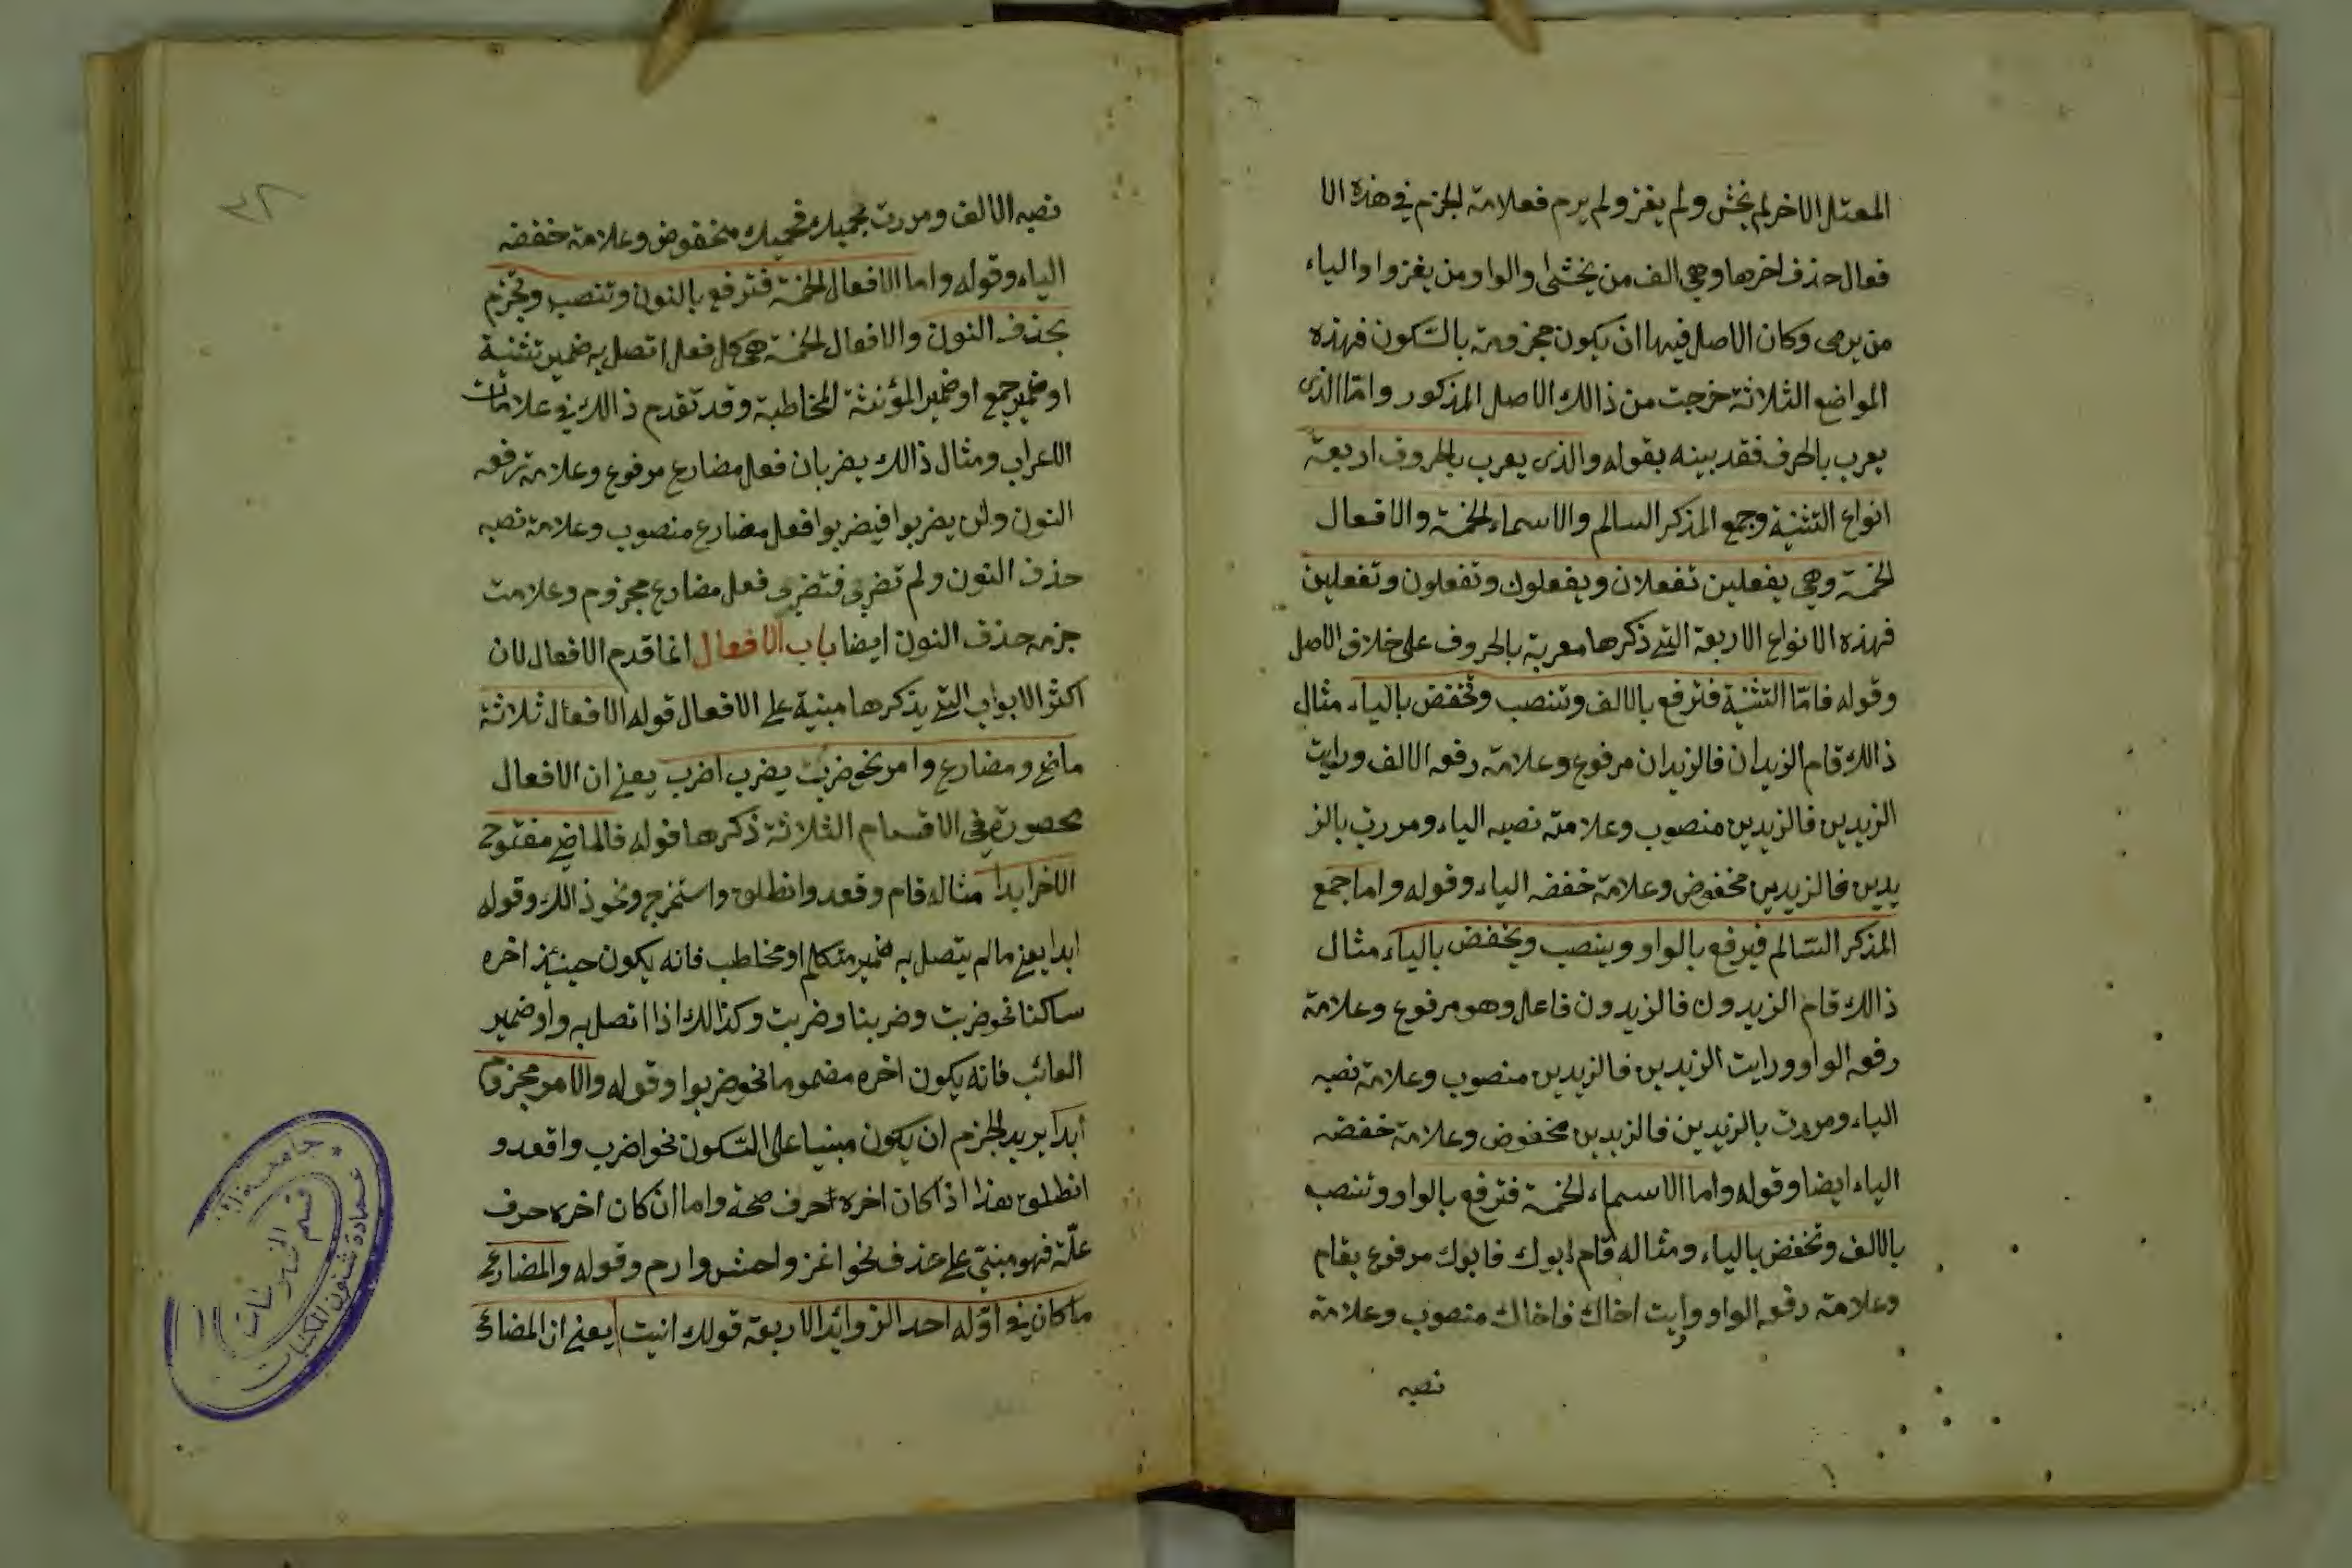 المعتل الاخر لم يخش ولم يغز ولم يرم فعلامة الجزم في هذه الا
فعال حذف اخرها وهي الف من يخشى والواو من يغزوا والياء
من يرمى وكان الاصل فيها ان يكون مجزومة بالسّكون فهذه
المواضع الثلاثة خرجت من ذالك الاصل المذكور وامّا الذى
يعرب بالحرف فقد بينه بقوله والذى يعرب بالحروف اربعة
انواع التثنية وجمع المذكر السالم والاسماء الخمسة والافعال
الخمسة وهي يفعلين تفعلان ويفعلون وتفعلون وتفعلين
فهذه الانواع الاربعة التي ذكرها معربة بالحروف على خلاف الاصل
وقوله فامّا التثنية فترفع بالالف وتنصب وتخفض بالياء مثال
ذالك قام الزيدان فالزيدان مرفوع وعلامة رفعه الالف ورايت
الزيدين فالزيدين منصوب وعلامته نصبه الياء ومررت بالز
يدين فالزيدين مخفوض وعلامة خفضه الياء وقوله واما جمع
المذكر السّالم فيرفع بالواو وينصب ويخفض بالياء مثال
ذالك قام الزيدون فالزيدون فاعل وهو مرفوع وعلامة
رفعه الواو ورايت الزيدين فالزيدين منصوب وعلامة نصبه
الياء ومررت بالزيدين فالزيدين مخفوض وعلامة خفضه
الياء ايضا وقوله واما الاسماء الخمسة فترفع بالواو وتنصب
بالالف وتخفض بالياء ومثاله قام ابوك فابوك مرفوع بقام
وعلامته رفعه الواو ورايت اخاك فاخاك منصوب وعلامة
نصبه
نصبه الالف ومررت بحميك فحميك مخفوض وعلامة خفضه
الياء وقوله واما الافعال الخمسة فترفع بالنون وتنصب وتجزم
بحذف النون والافعال الخمسة هي كل فعل اتصل به ضمير تثنية
او ضمير جمع او ضمير المؤنثة المخاطبة وقد تقدم ذالك في علامات
الاعراب ومثال ذالك يضربان فعل مضارع مرفوع وعلامة رفعه
النون ولن يضربوا فيضربوا فعل مضارع منصوب وعلامة نصبه
حذف النون ولم تضربى فتضربى فعل مضارع مجزوم وعلامت
جزمه حذف النون ايضا باب الافعال انما قدم الافعال لان
اكثر الابواب التي يذكرها مبنية على الافعال قوله الافعال ثلاثة
ماضى ومضارع وامر نحو ضرب يضرب اضرب يعني ان الافعال
محصورة في الاقسام الثلاثة ذكرها قوله فالماضي مفتوح
الاخر ابدا مثاله قام وقعد وانطلق واستخرج ونحو ذالك وقوله
ابدا يعني مالم يتصل به ضمير متكلم او مخاطب فانه يكون حينئذ اخره
ساكنا نحو ضربت وضربنا وضربت وكذالك اذا اتصل به واو ضمير
الغائب فانه يكون اخره مضموما نحو ضربوا وقوله والامر مجزوم
ابدا يريد الجزم ان يكون مبنيا على السّكون نحو اضرب واقعد و
انطلق هذا اذا كان اخره حرف صحة واما ان كان اخره حرف
علّة فهو مبنىّ على حذف نحو اغز واخش وارم وقوله والمضارع
ما كان في اوّله احد الزوائد الاربعة قولك انيت يعني ان المضارع
جامعة
عمادة شئون المكتبات
قسم